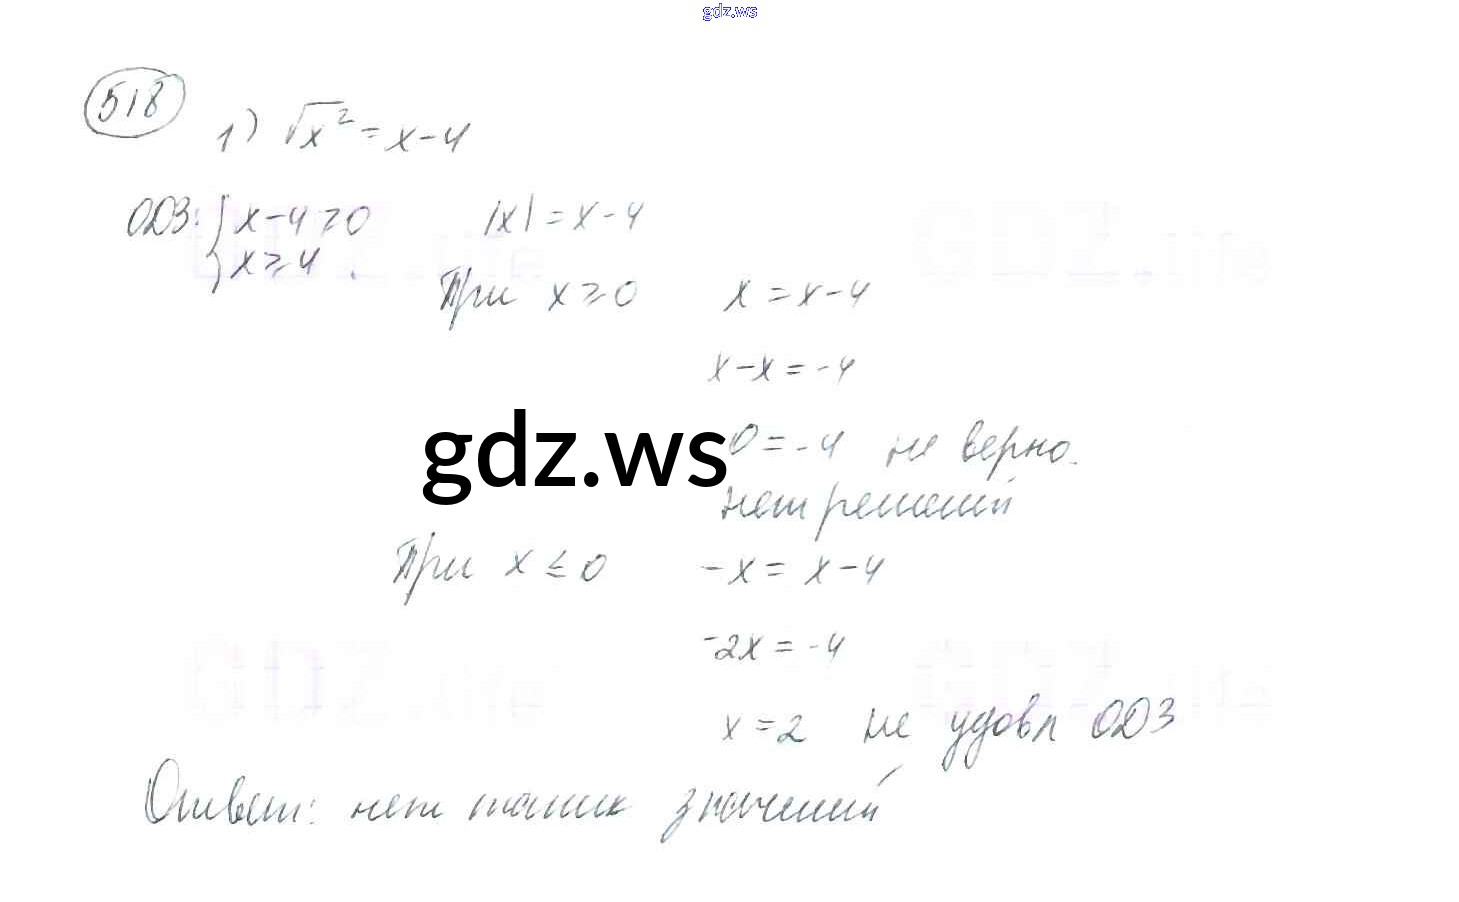 gdz.ws
518
1) √x² = x-4
ОДЗ: { x-4 ≥ 0 |x| = x-4
x ≥ 4
При x ≥ 0 x = x-4
x-x = -4
gdz.ws 0 = -4 не верно.
нет решений
При x ≤ 0 -x = x-4
-2x = -4
x = 2 не удовл ОДЗ
Ответ: нет таких значений
GDZ.life
GDZ.life
GDZ.life
GDZ.life